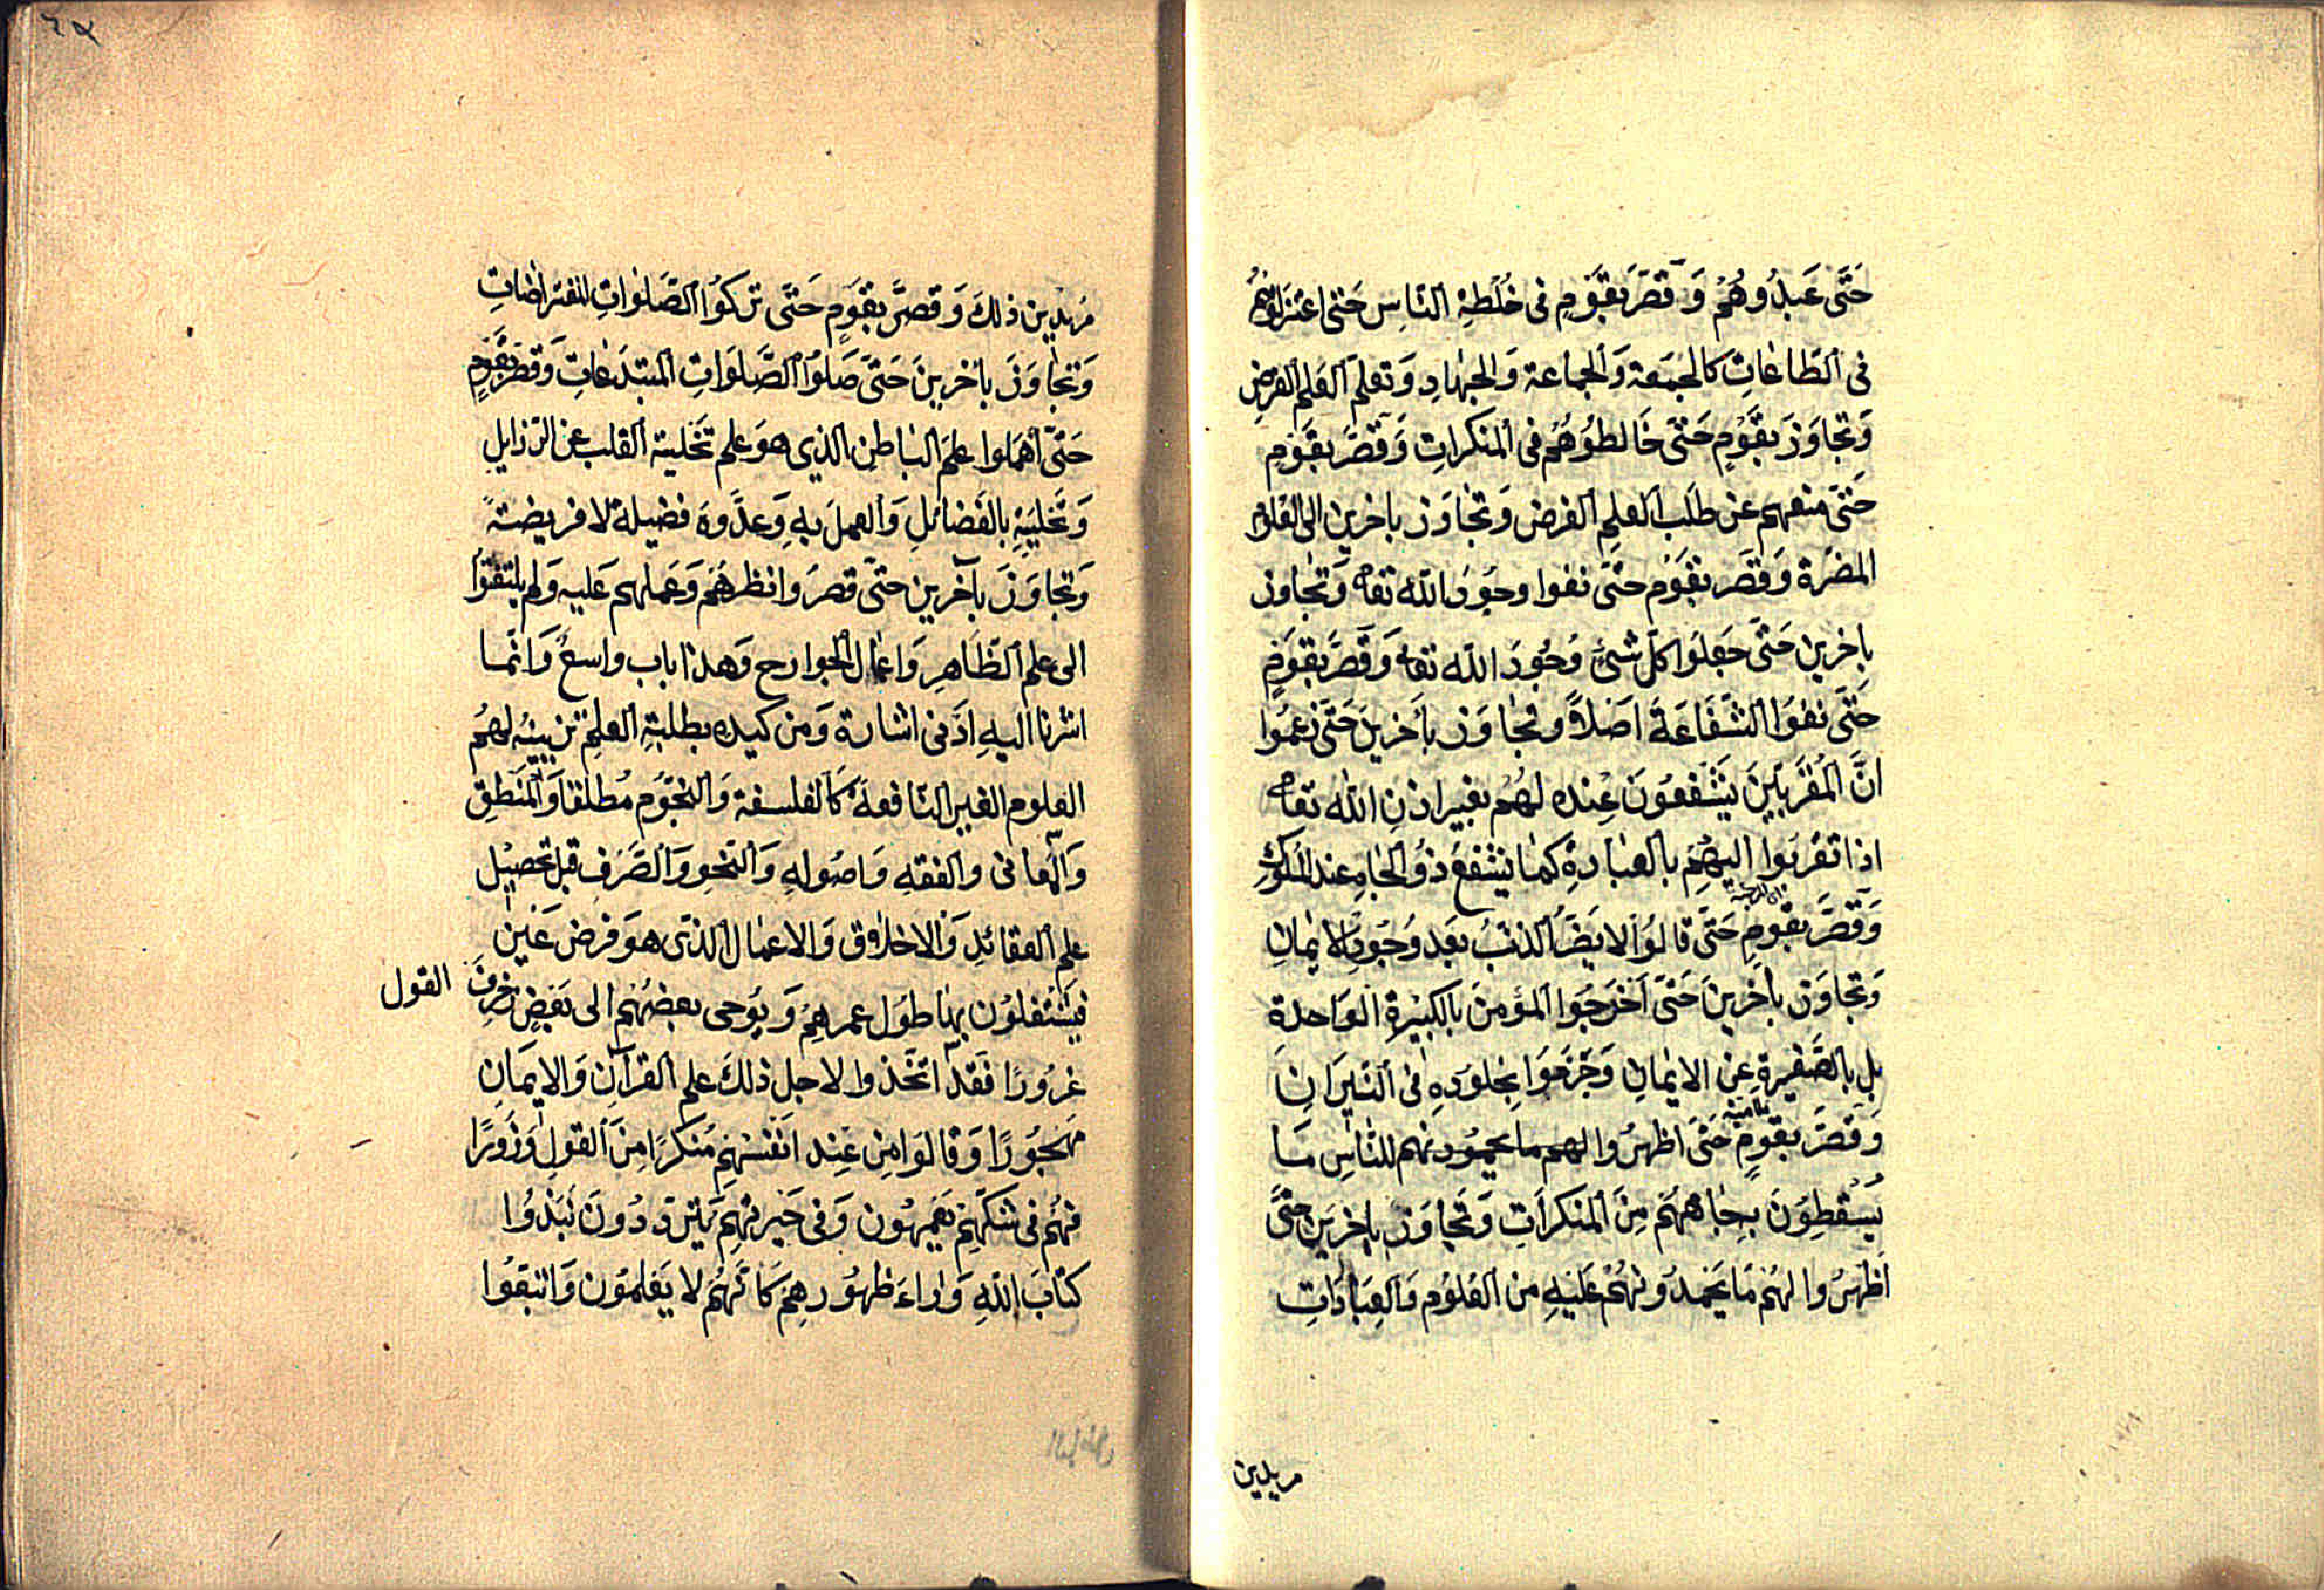 حَتَّى عَبَدُوهُمْ وَقَصَّرَ بِقَوْمٍ فى خُلْطَةِ النَّاسِ حَتّى اعْتَزَلُوهُمْ
فى الطَّاعَاتِ كالجُمَعَة وَالجماعة وَالجِهَادِ وَتعلّم العلم الفرض
وَتجاوَزَ بِقَوْمٍ حَتّىَ خَالطُوهُم فى المنكراتِ وَقصَّرَ بقَومٍ
حَتّىَ منعهم عن طلَب العلمِ الفرض وَتجاوَز باخرين الى العلوم
المضرّة وَقصَّر بقَوْم حتّىَ نفوا وجُودَ الله تعا وَتجاوز
بِاخرين حَتّىَ جَعلُوا كلّ شئ وُجُودَ الله تعا وَقصَّرَ بقوَمٍ
حَتّىَ نفوُا الشَّفَاعَةَ اَصْلاً وتجاوَز بأخرينَ حَتّىَ زعمُوا
انَّ المُقَرَّبِينَ يَشْفعُونَ عِنْده لهُم بغيراذنِ الله تعا
اذا تقرّبوا اليهُمِ بالعبادةِ كما يَشْفعَ ذوُ الجاهِ عند الملوك
وَقصَّرَ بقومٍ حَتَّى قالوُا لايضرّ الذنبُ بَعَد وُجُودِ الايمانِ
وَتجاوَز بأخرينَ حَتّىَ اَخْرَجَوا المؤمنَ بالكبيْرةِ الوَاحدةِ
بل بالصَّغيرةِ عن الايمانِ وَجَزَمَوا بخلوُدِهِ فى النّيرَانِ
وَقصَّرَ بقومٍ حَتّىَ اظهرُوا لهم ما يحمودنهم للنَّاسِ مَا
يُسْقطوُنَ بجاههمَ مِنَ المنكراتِ وَتجاوَز باخرين حتّىَ
اَظهَرُوا لهُم مَا يَحمدُونهُمْ عَليهِ من العُلوُم وَالعِبادَاتِ
مريدين
٦٩
مريدين ذلكَ وَقصرَّ بقوَمٍ حَتّى تركوُا الصَّلواتِ المفترضاتِ
وَتجاوَزَ باخرينَ حَتّىَ صَلوُا الصَّلوَاتِ المبتدَعاتِ وَقصّرَ بقَومٍ
حَتّى اَهمَلوا علمَ الباطن الذي هوَ علم تخلية القلب عن الرّذايلِ
وَتحليَتهِ بالفَضائلِ وَالعملَ بهِ وَعدَّوهَ فضيلة لا فريضةً
وَتجاوَزَ بآخرين حتىّ قصرُوا نظرهُمَ وَعَملهم عَليهِ وَلم يلتفتوُا
الى علم الظّاهرِ وَاعمال الجوارح وَهذا باب واسعٌ وَانّما
اشرنا اليهِ ادَنى اشارة وَمن كيده بطلبةِ العلم تزيينهُ لهُمُ
العلوم الغير النّافعةَ كالفلسفة وَالنجّوُم مُطلقا وَالمنَطق
وَالمعانى والفقهِ وَاصُولهِ وَالنّحوِ وَالصَّرَفِ قبل تحصيْل
علم العقائدِ وَالاخلاق وَالاعمال الذى هوَ فرض عَيْن
فيشْتغلوُن بها طوُل عمرهمُ وَيوُحى بعضهُم الى بَعضٍ زخرفَ القول
غرُورًا فقدَ اتّخَذوا لاجل ذلكَ علم القرآنِ وَالايمَانِ
مهَجُورًا وَقالوَا مِن عِند انَفُسهمِ مُنكرًا مِنَ القولِ وَزُورًا
فهُم فى شكّهم يَعمهوُن وَفى حَيرتهِم يَتردّدُونَ نَبَذُوا
كتابَ اللهِ وَراءَ ظهوُرهِمْ كَانّهمُ لا يَعلموُن وَاتبّعُوا